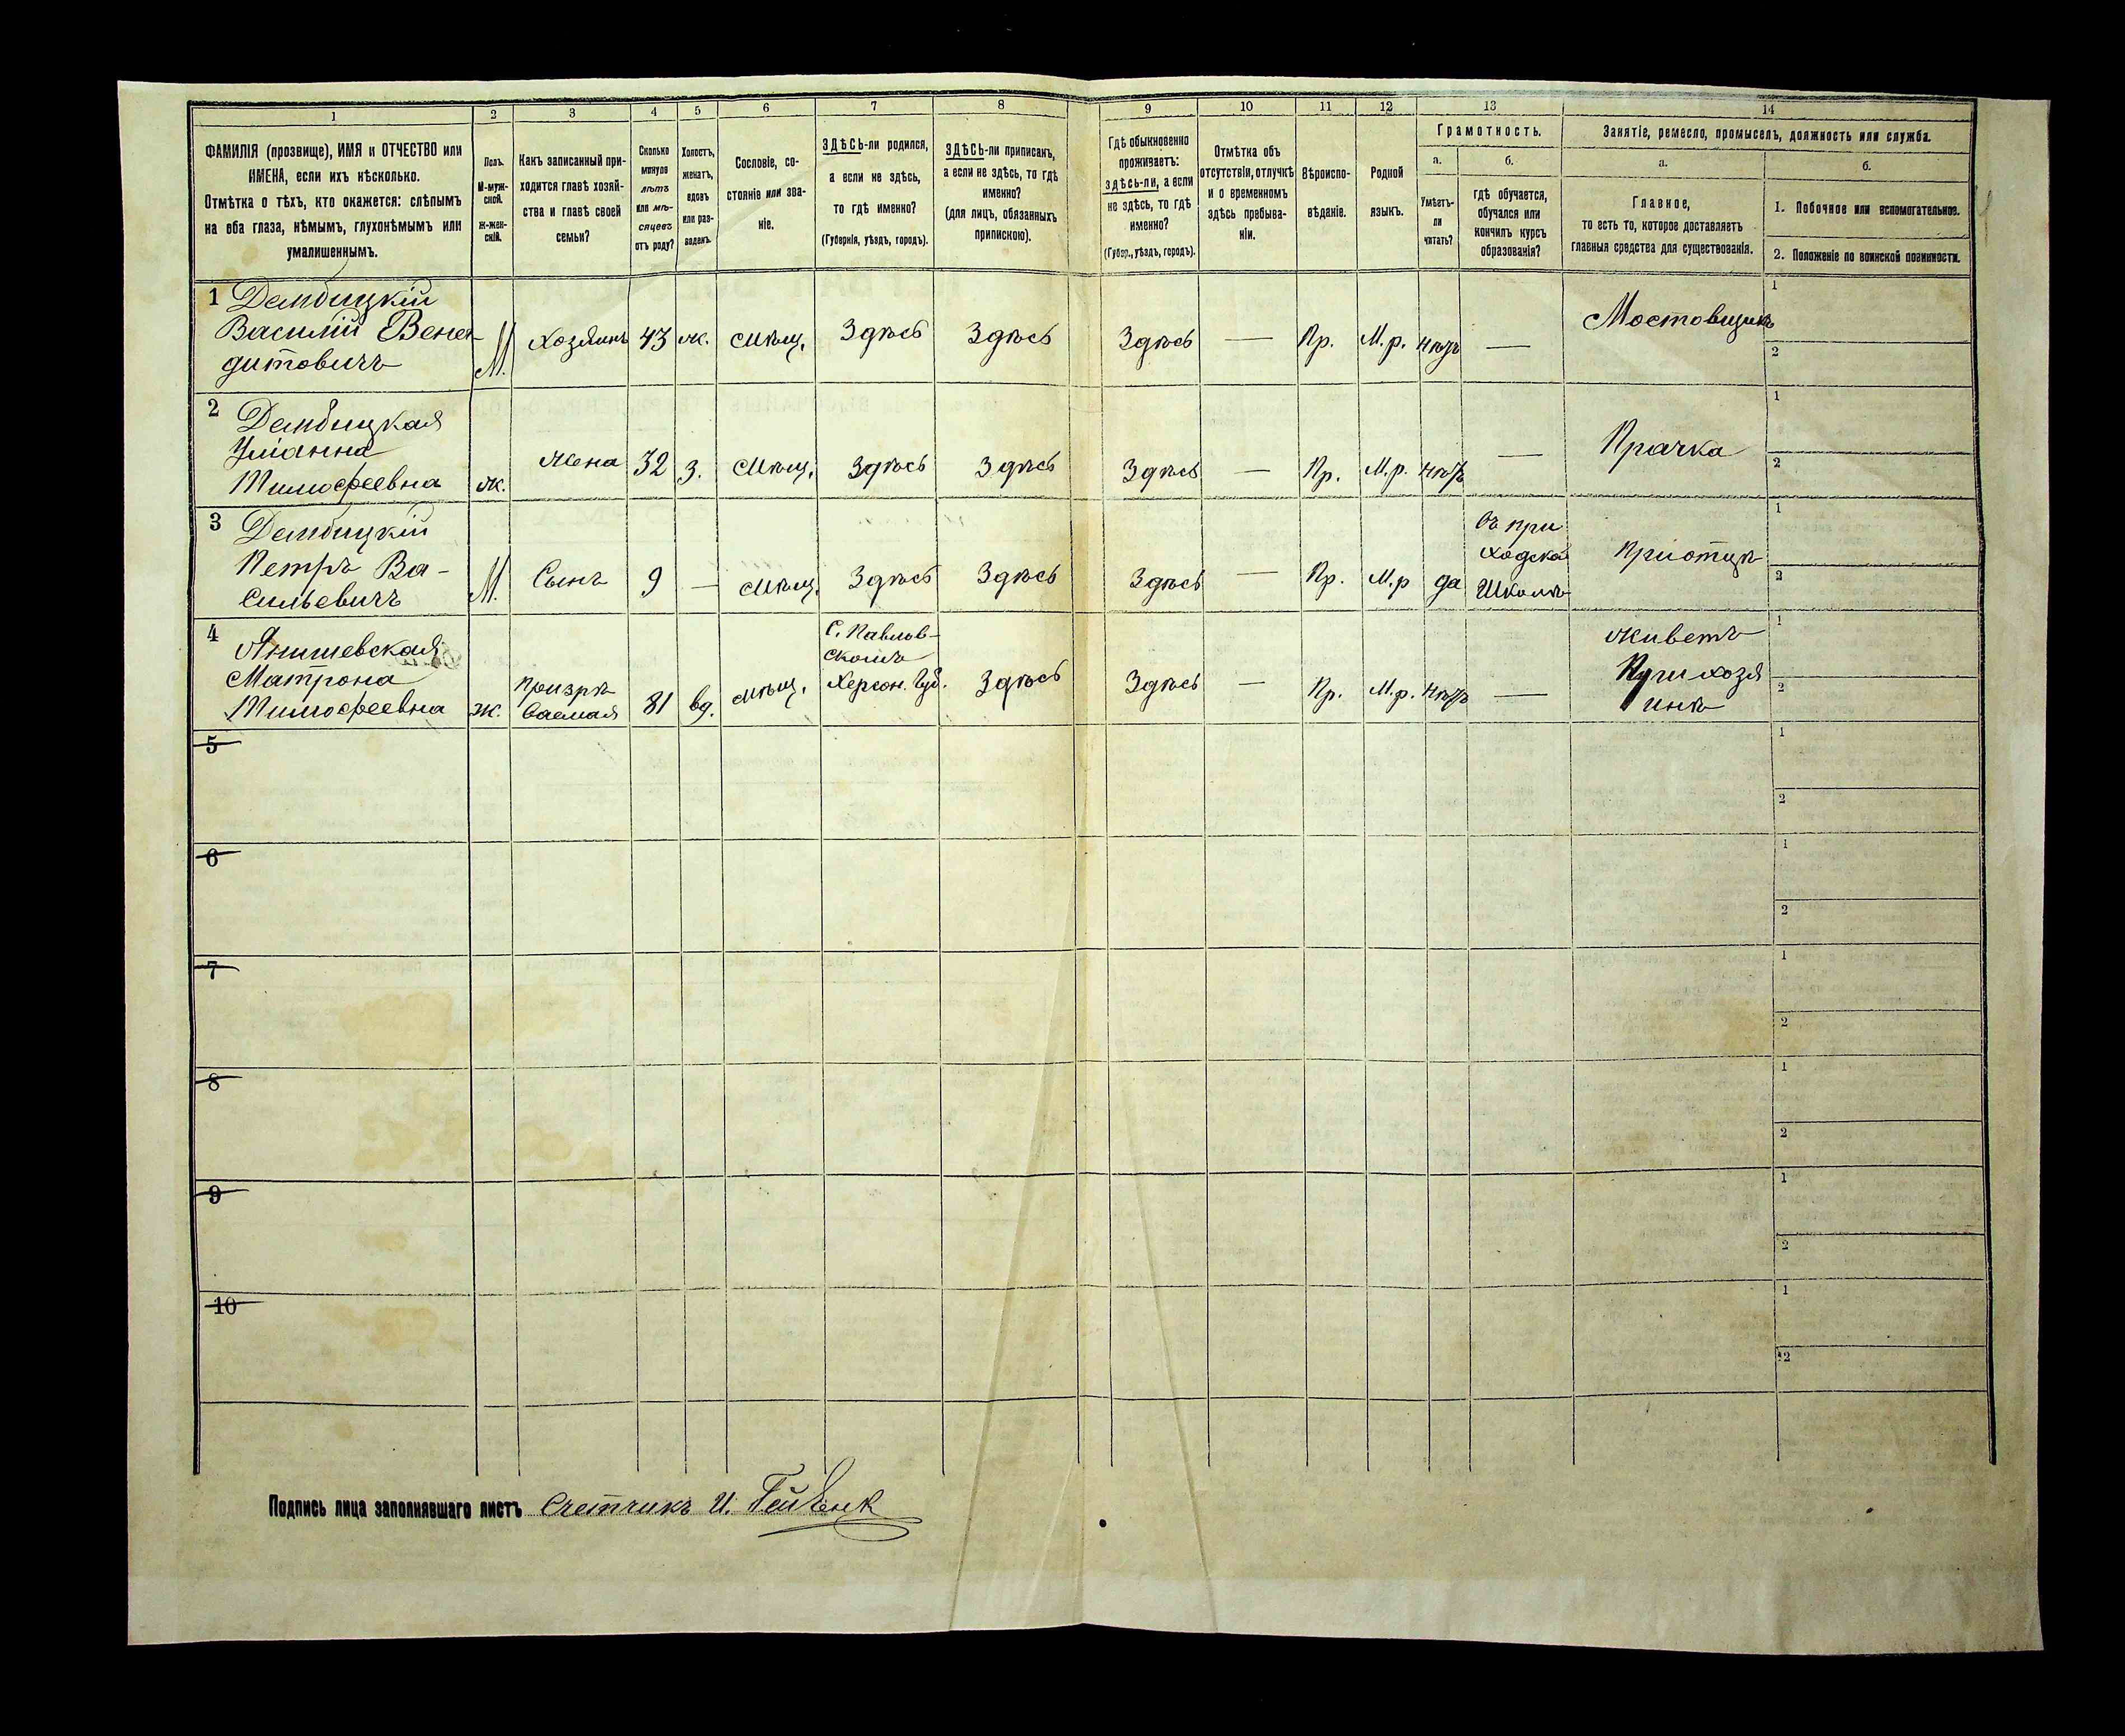 1 2 3 4 5 6 7 8 9 10 11 12 13 14
ФАМИЛІЯ (прозвище), ИМЯ и ОТЧЕСТВО или
ИМЕНА, если ихъ нѣсколько.
Отмѣтка о тѣхъ, кто окажется: слѣпымъ
на оба глаза, нѣмымъ, глухонѣмымъ или
умалишеннымъ.
Полъ.
М-муж-
ской.
Ж-жен-
скій.
Какъ записанный при-
ходится главѣ хозяй-
ства и главѣ своей
семьи?
Сколько
минуло
лѣтъ
или мѣ-
сяцевъ
отъ роду?
Холостъ,
женатъ,
вдовъ
или раз-
веденъ.
Сословіе, со-
стояніе или зва-
ніе.
ЗДѢСЬ-ли родился,
а если не здѣсь,
то гдѣ именно?
(Губернія, уѣздъ, городъ).
ЗДѢСЬ-ли приписанъ,
а если не здѣсь, то гдѣ
именно?
(для лицъ, обязанныхъ
припискою).
Гдѣ обыкновенно
проживаетъ:
здѣсь-ли, а если
не здѣсь, то гдѣ
именно?
(Губер., уѣздъ, городъ).
Отмѣтка объ
отсутствіи, отлучкѣ
и о временномъ
здѣсь пребыва-
ніи.
Вѣроиспо-
вѣданіе.
Родной
языкъ.
Грамотность.
а.
Умѣетъ-
ли
читать?
б.
гдѣ обучается,
обучался или
кончилъ курсъ
образованія?
Занятіе, ремесло, промыселъ, должность или служба.
а.
Главное,
то есть то, которое доставляетъ
главныя средства для существованія.
б.
1. Побочное или вспомогательное.
2. Положеніе по воинской повинности.
1 Дембицкій
Василій Бене-
дитовичъ
М. Хозяинъ 43 ж. мѣщ. Здѣсь Здѣсь Здѣсь — Пр. М.р. нѣтъ — Мостовщикъ
1
2
2 Дембицкая
Уліанна
Тимофеевна
ж. Жена 32 з. мѣщ. Здѣсь Здѣсь Здѣсь — Пр. М.р. нѣтъ — Прачка
1
2
3 Дембицкій
Петръ Ва-
сильевичъ
М. Сынъ 9 — мѣщ. Здѣсь Здѣсь Здѣсь — Пр. М.р да
Въ при
ходской
Школѣ
При отцѣ
1
2
4 Янишевская
Матрона
Тимофеевна
ж.
призрѣ
ваемая
81 вд. мѣщ.
С. Павлов-
скомъ
Херсон. Губ.
Здѣсь Здѣсь — Пр. М.р. нѣтъ —
Живетъ
При хозя
инѣ
1
2
5
1
2
6
1
2
7
1
2
8
1
2
9
1
2
10
1
2
Подпись лица заполнявшаго листъ Счетчикъ И.